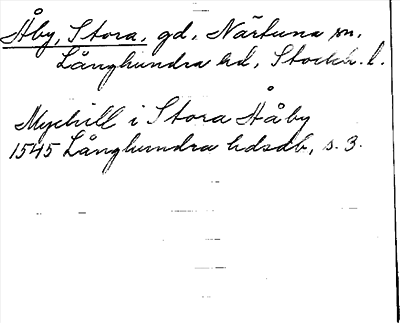 Åby, Stora, gd, Närtuna sn,
Långhundra hd, Stockh. l.
Mychill i Stora Åby
1545 Långhundra hdsdb, s. 3.